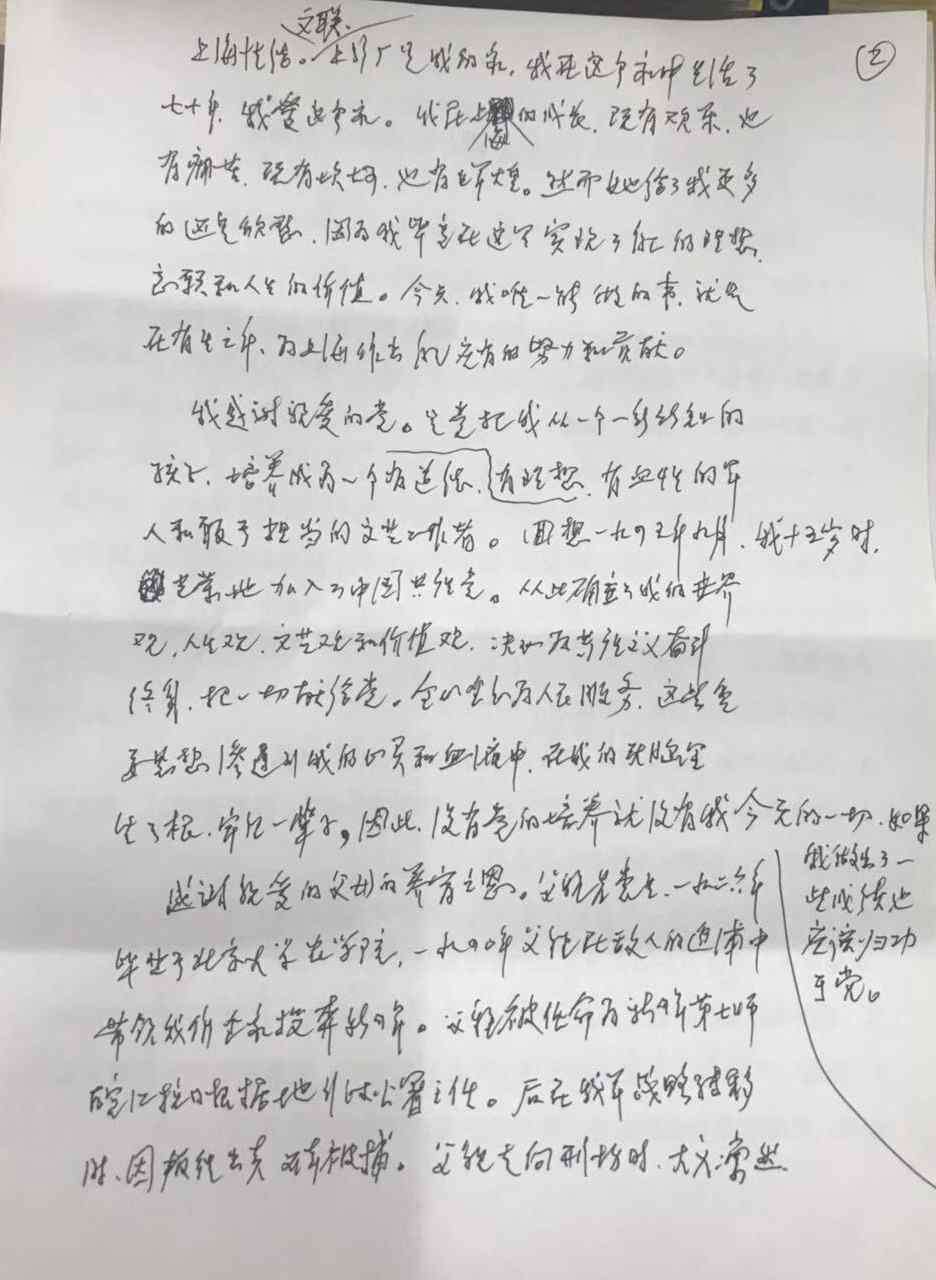 ②
文联、
上海电信。上影厂是我的家,我在这个家中生活了
七十年,我爱这个家。我在上海的成长,既有欢乐,也
有痛苦,既有坎坷,也有辉煌。然而她给了我更多
的还是欣慰,因为我毕竟在这里实现了自己的理想、
志愿和人生的价值。今天,我唯一能做的事,就是
在有生之年,为上海作出自己应有的努力和贡献。
我感谢亲爱的党。是党把我从一个一无所知的
孩子,培养成为一个有道德、有理想、有血性的军
人和敢于担当的文艺工作者。回想一九四五年九月,我十五岁时,
光荣地加入了中国共产党。从此确立了我的世界
观,人生观,文艺观和价值观,决心为共产主义奋斗
终身,把一切献给党。全心全意为人民服务,这些重
要思想渗透到我的心灵和血液中,在我的头脑里
生了根,牢记一辈子,因此,没有党的培养就没有我今天的一切,如果
我做出了一
些成绩也
应该归功
于党。
感谢亲爱的父母的养育之恩。父亲是党员,一九二六年
毕业于北京大学农学院,一九四〇年父亲在敌人的追捕中
带领我们全家投奔新四军。父亲被任命为新四军第七师
皖江抗日根据地行政公署主任。后在我军战略转移
时,因叛徒出卖不幸被捕。父亲走向刑场时,大义凛然